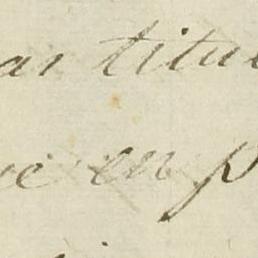 ar titul
e en p